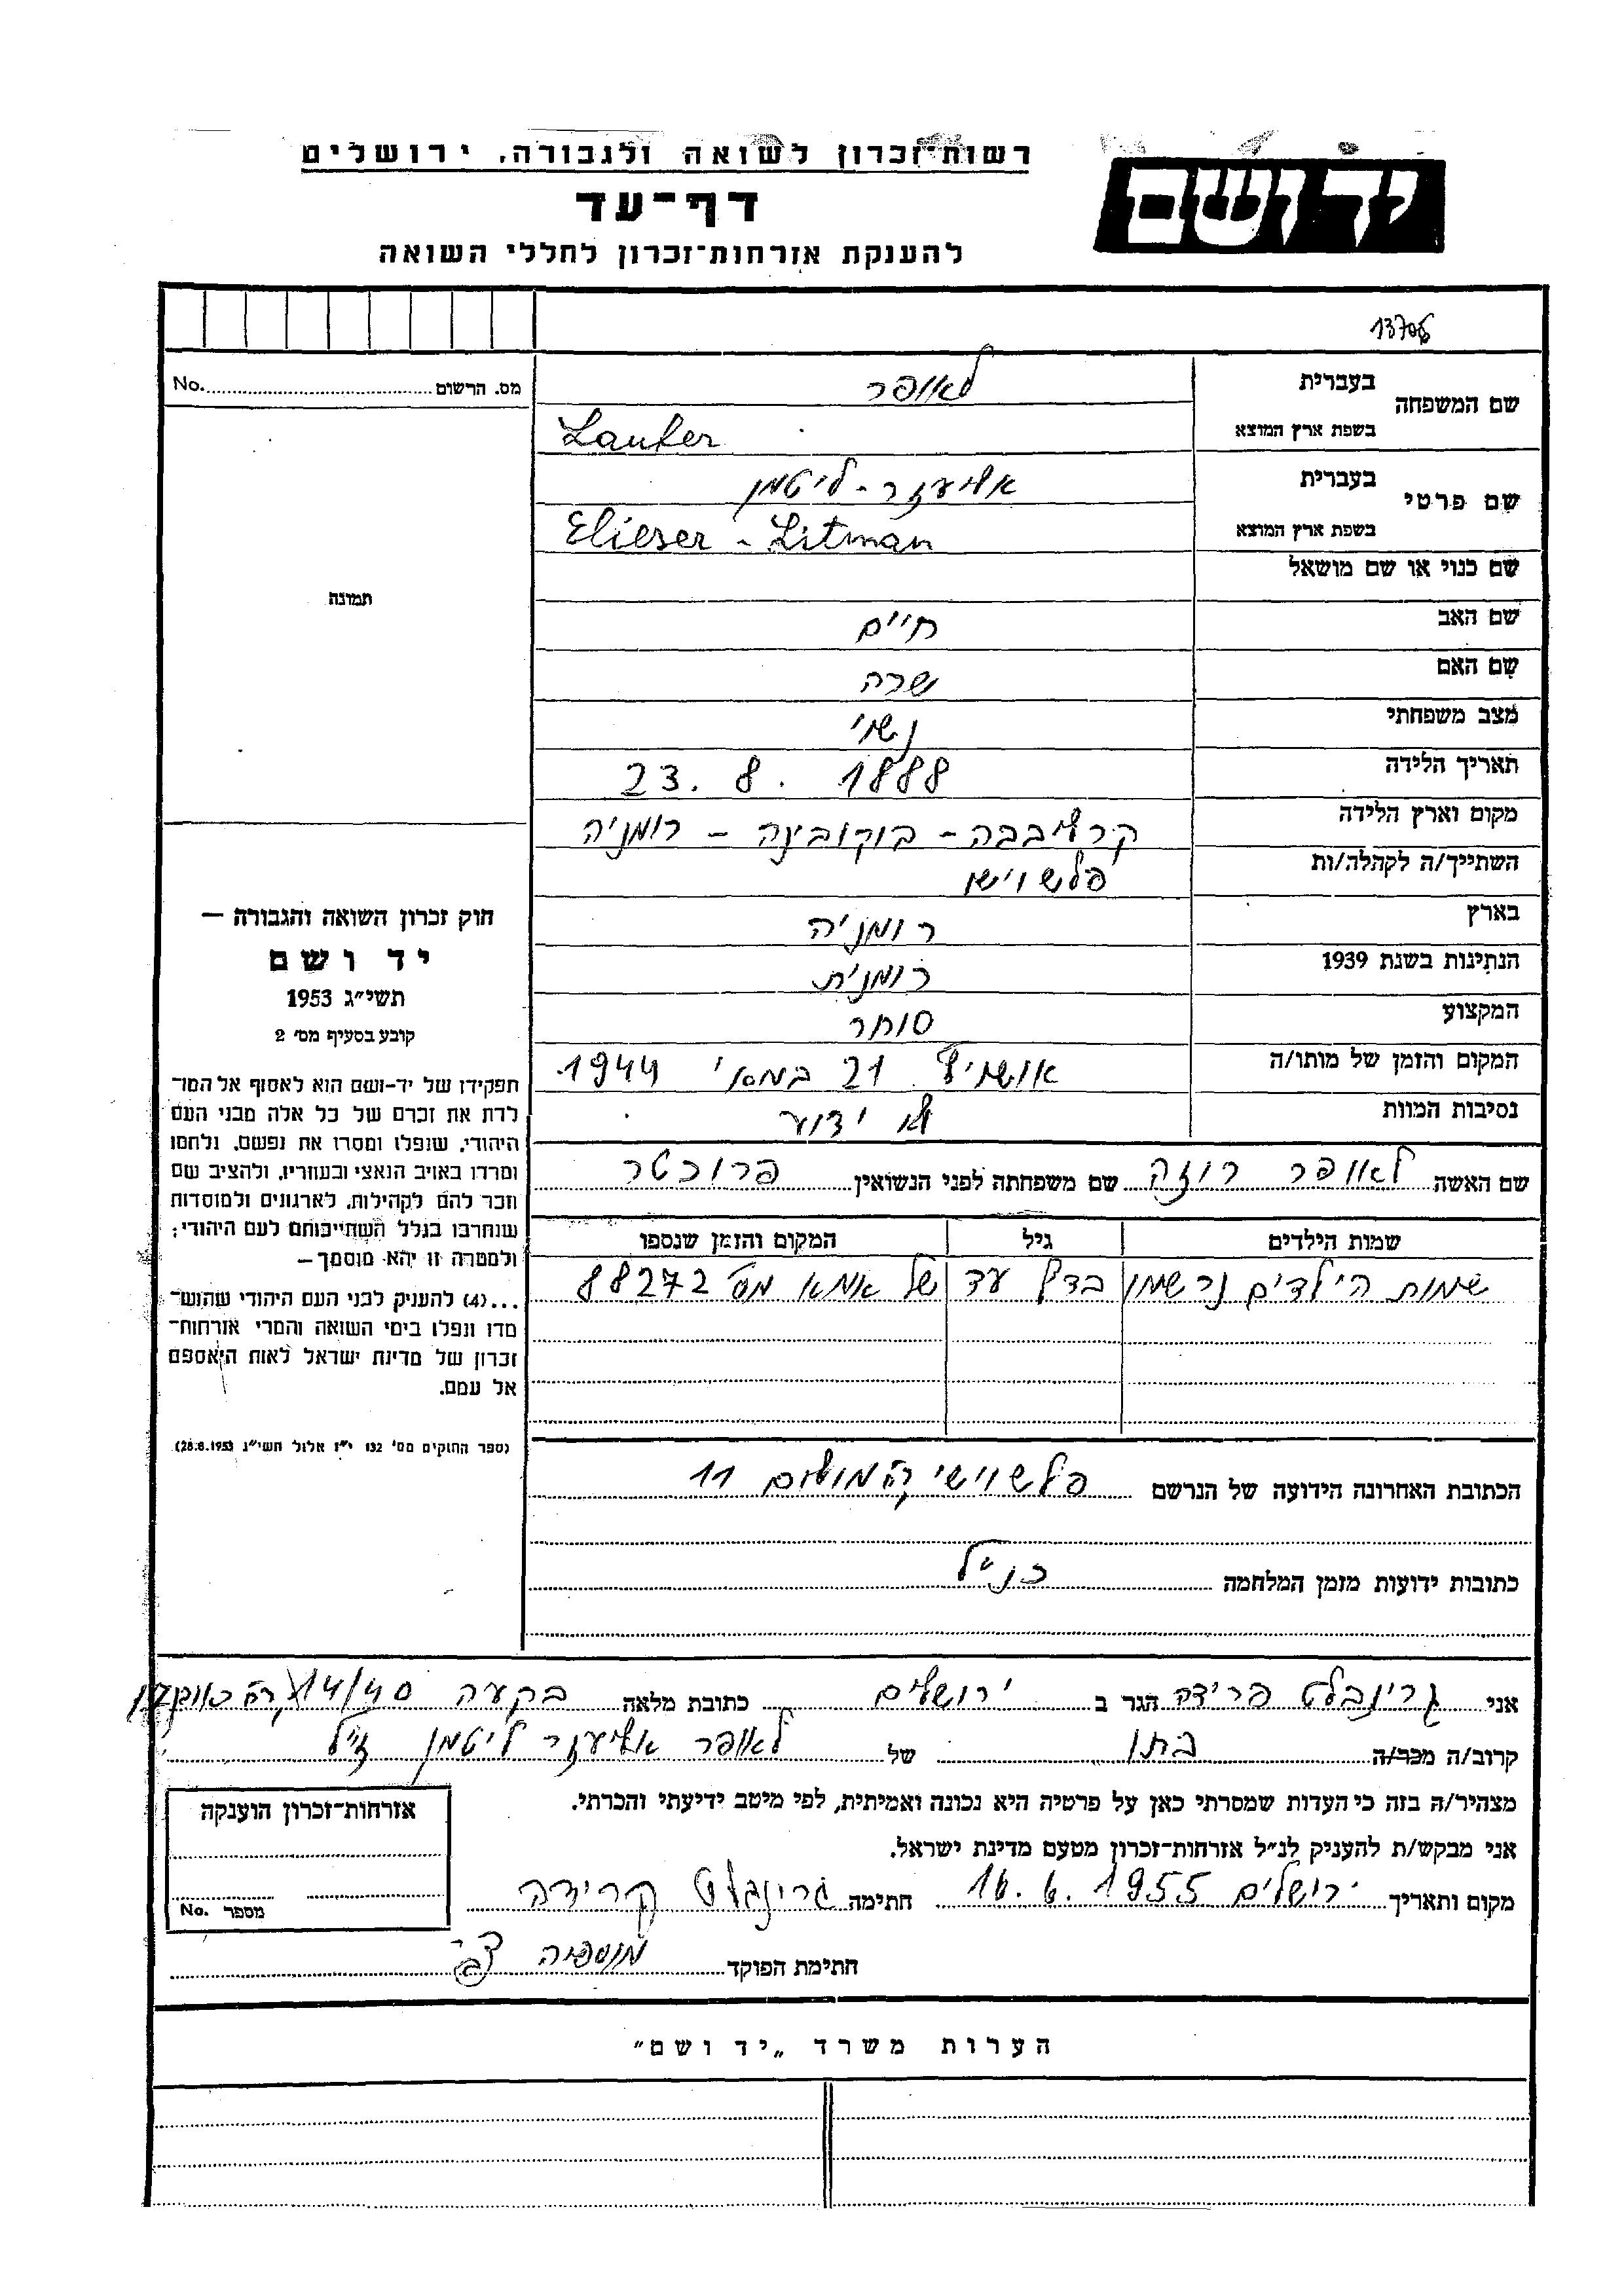 רשות־זכרון לשואה ולגבורה, ירושלים
יד ושם
דף־עד
להענקת אזרחות־זכרון לחללי השואה
13706
מס. הרשום No.
שם המשפחה בעברית לאופר
בשפת ארץ המוצא Laufer
שם פרטי בעברית אליעזר - ליטמן
בשפת ארץ המוצא Elieser - Litman
שם כנוי או שם מושאל
שם האב חיים
שם האם שרה
מצב משפחתי נשוי
תאריך הלידה 23. 8. 1888
מקום וארץ הלידה קרליבבה - בוקובינה - רומניה
השתייך/ה לקהלה/ות פלשוישו
בארץ רומניה
הנתינות בשנת 1939 רומנית
המקצוע סוחר
המקום והזמן של מותו/ה אושויץ 21 במאי 1944
נסיבות המוות לא ידוע
שם האשה לאופר רוזה שם משפחתה לפני הנשואין פרוכטר
שמות הילדים גיל המקום והזמן שנספו
שמות הילדים נרשמו בדף עד של אמא מס' 88272
הכתובת האחרונה הידועה של הנרשם פלשוישו 11
כתובות ידועות מזמן המלחמה כנ״ל
תמונה
חוק זכרון השואה והגבורה —
יד ושם
תשי״ג 1953
קובע בסעיף מס׳ 2
תפקידן של יד-ושם הוא לאסוף אל המו־
לדת את זכרם של כל אלה מבני העם
היהודי, שנפלו ומסרו את נפשם, נלחמו
ומרדו באויב הנאצי ובעוזריו, ולהציב שם
וזכר להם לקהילות, לארגונים ולמוסדות
שנחרבו בגלל השתייכותם לעם היהודי;
ולמטרה זו יהא מוסמך—
...(4) להעניק לבני העם היהודי שהוש־
מדו ונפלו בימי השואה והמרי אזרחות־
זכרון של מדינת ישראל לאות היאספם
אל עמם.
(ספר החוקים מס׳ 132 י״ז אלול תשי״ג 28.8.1953)
אני גרינבלט פרידה הגר ב ירושלים כתובת מלאה בקעה 14/40
קרוב/ה מכר/ה בתו של לאופר אליעזר ליטמן ז״ל
מצהיר/ה בזה כי העדות שמסרתי כאן על פרטיה היא נכונה ואמיתית, לפי מיטב ידיעתי והכרתי.
אני מבקש/ת להעניק לנ״ל אזרחות־זכרון מטעם מדינת ישראל.
מקום ותאריך ירושלים 16.6.1955 חתימה גרינבלט פרידה
חתימת הפוקד
אזרחות־זכרון הוענקה
מספר No.
הערות משרד „יד ושם״